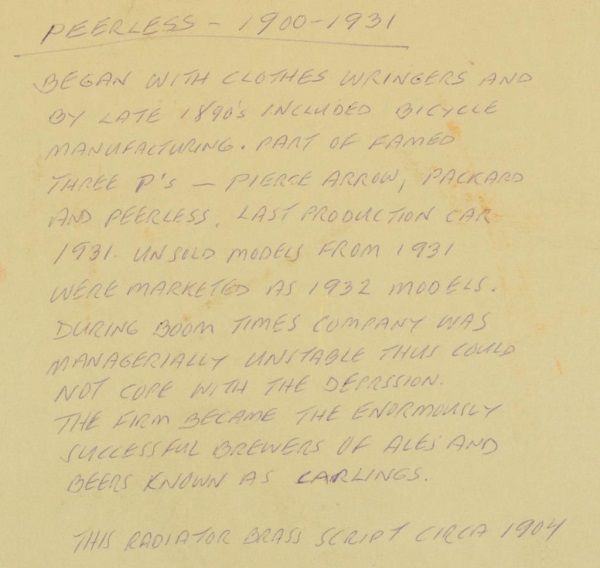 PEERLESS - 1900-1931
BEGAN WITH CLOTHES WRINGERS AND
BY LATE 1890's INCLUDED BICYCLE
MANUFACTURING. PART OF FAMED
THREE P's — PIERCE ARROW, PACKARD
AND PEERLESS. LAST PRODUCTION CAR
1931. UNSOLD MODELS FROM 1931
WERE MARKETED AS 1932 MODELS.
DURING BOOM TIMES COMPANY WAS
MANAGERIALLY UNSTABLE THUS COULD
NOT COPE WITH THE DEPRSSION.
THE FIRM BECAME THE ENORMOUSLY
SUCCESSFUL BREWERS OF ALES AND
BEERS KNOWN AS CARLINGS.
THIS RADIATOR BRASS SCRIPT CIRCA 1904